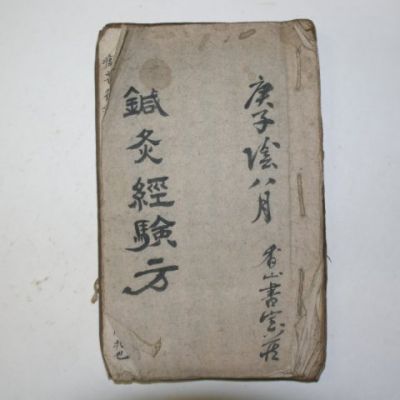 庚子陰八月
香山書室藏
鍼灸經驗方